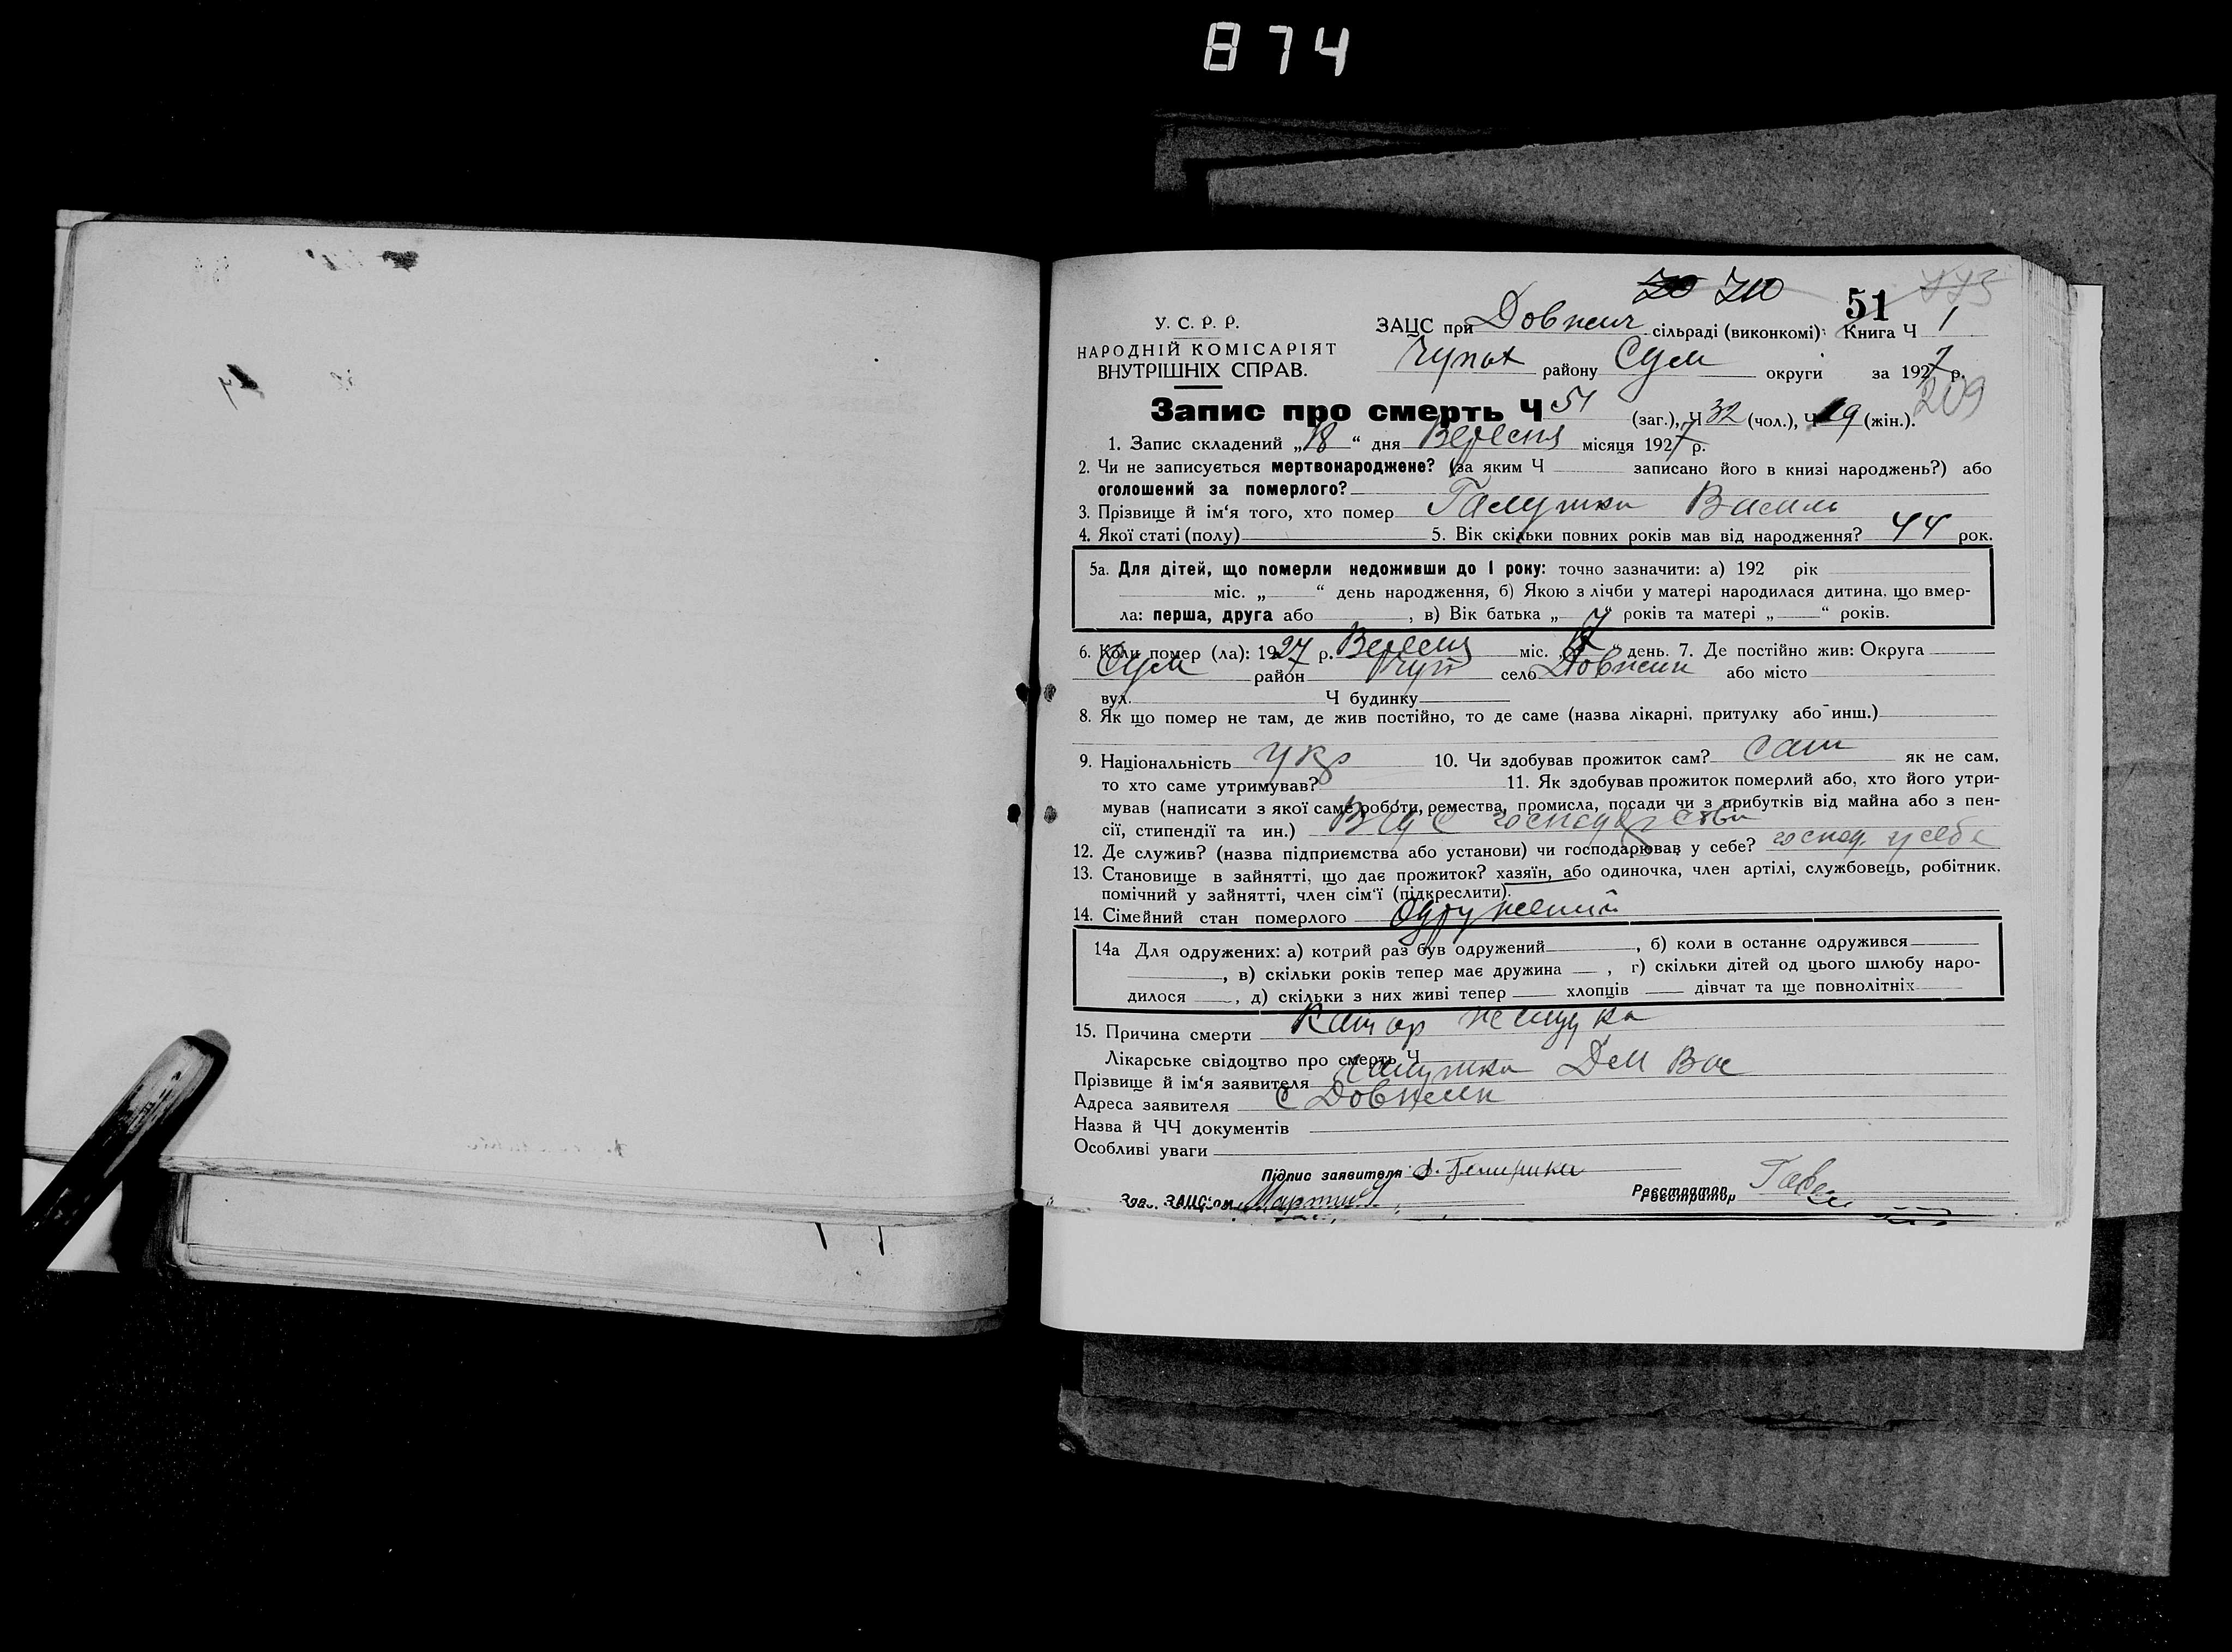 874
710
51
У. С. Р. Р.
ЗАЦС при Довжич сільраді (виконкомі): Книга Ч 1
НАРОДНІЙ КОМІСАРІЯТ
ВНУТРІШНІХ СПРАВ.
Чупах району Сум округи за 1927 р.
209
Запис про смерть Ч 51 (заг.), Ч 32 (чол.), Ч 19 (жін.).
1. Запис складений „18“ дня Вересня місяця 1927 р.
2. Чи не записується мертвонароджене? (за яким Ч записано його в книзі народжень?) або
оголошений за померлого?
3. Прізвище й ім‘я того, хто помер Галушка Василь
4. Якої статі (полу) 5. Вік скільки повних років мав від народження? 44 рок.
5а. Для дітей, що померли недоживши до 1 року: точно зазначити: а) 192 рік
міс. „ “ день народження, б) Якою з лічби у матері народилася дитина, що вмер-
ла: перша, друга або , в) Вік батька „ “ років та матері „ “ років.
6. Коли помер (ла): 1927 р. Вересня міс. „17“ день. 7. Де постійно жив: Округа
Сум район Чуп село Довжик або місто
вул. Ч будинку
8. Як що помер не там, де жив постійно, то де саме (назва лікарні, притулку або инш.)
9. Національність Укр 10. Чи здобував прожиток сам? Сам як не сам,
то хто саме утримував? 11. Як здобував прожиток померлий або, хто його утри-
мував (написати з якої саме роботи, ремества, промисла, посади чи з прибутків від майна або з пен-
сії, стипендії та ин.) Від с господарства
12. Де служив? (назва підприємства або установи) чи господарював у себе? господ. у себе
13. Становище в зайнятті, що дає прожиток? хазяїн, або одиночка, член артілі, службовець, робітник,
помічний у зайнятті, член сім‘ї (підкреслити).
14. Сімейний стан померлого Одружений
14а Для одружених: а) котрий раз був одружений , б) коли в останнє одружився
, в) скільки років тепер має дружина , г) скільки дітей од цього шлюбу наро-
дилося , д) скільки з них живі тепер хлопців дівчат та ще повнолітніх
15. Причина смерти Катар желудка
Лікарське свідоцтво про смерть Ч
Прізвище й ім‘я заявителя Галушка Дем Вас
Адреса заявителя С Довжик
Назва й ЧЧ документів
Особливі уваги
Підпис заявителя
Зав. ЗАЦС‘ом Реєстратор